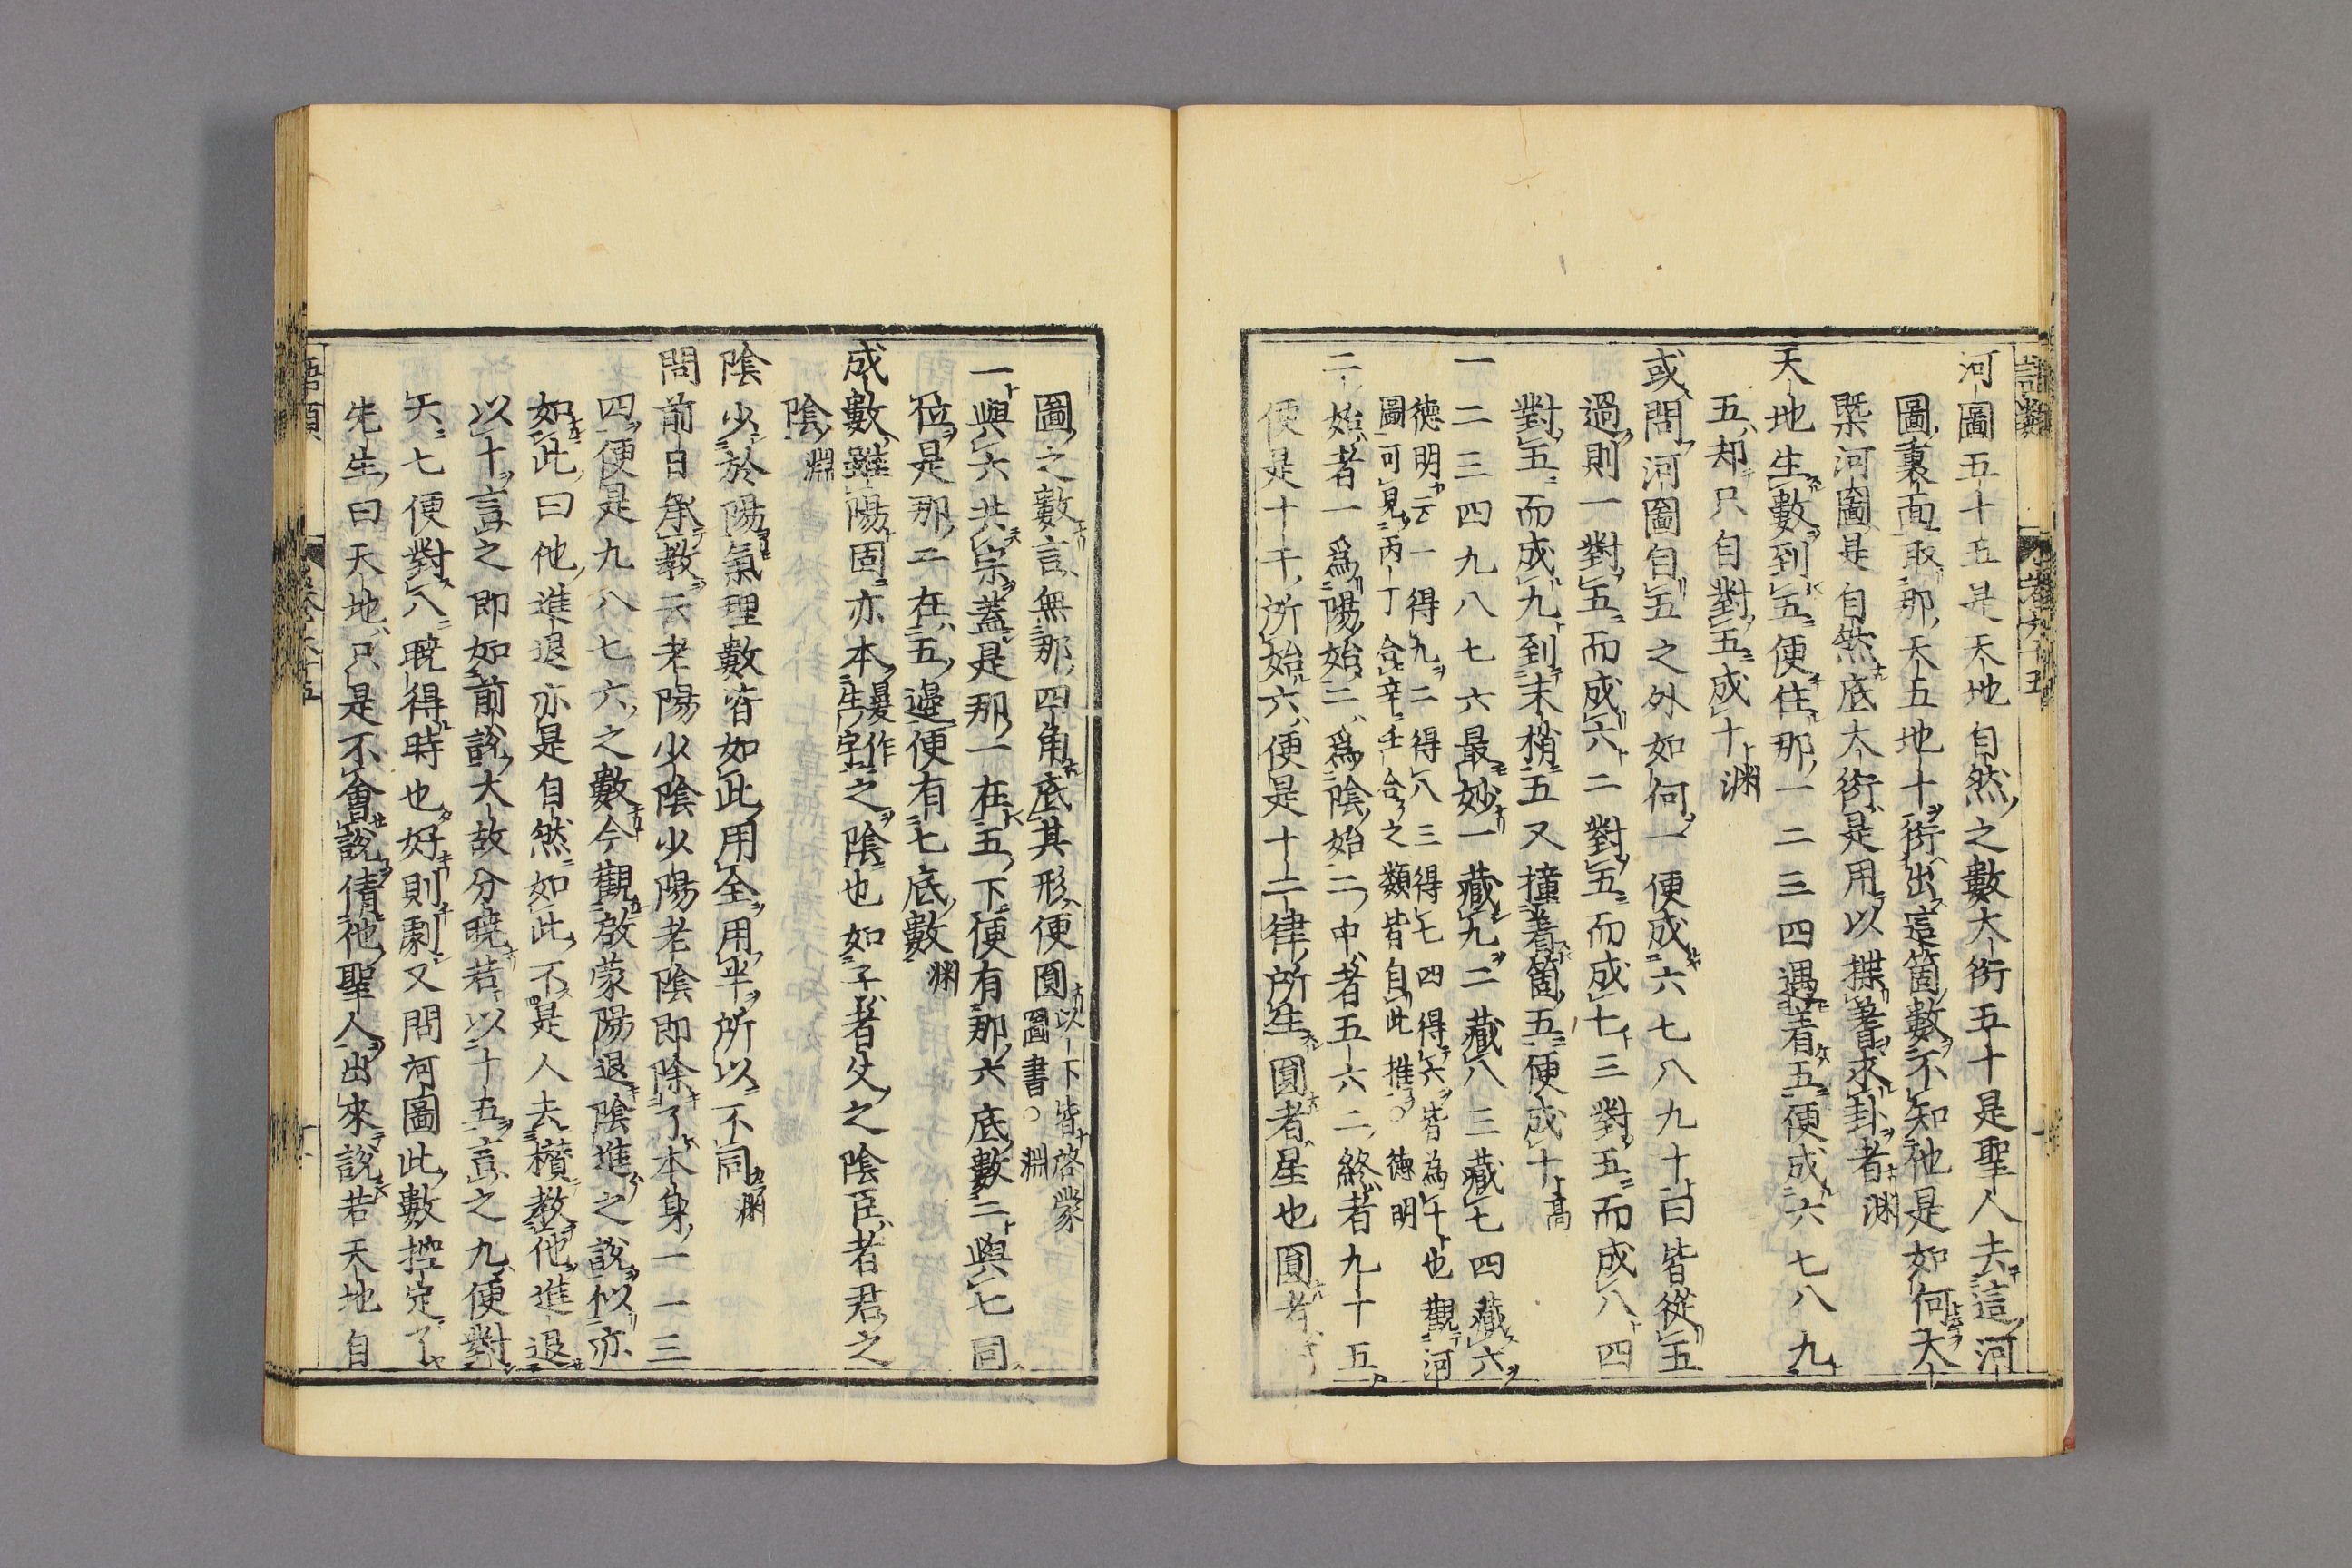 河圖五十五是天地自然之數大衍五十是聖人去這河
圖裏面取那天五地十衍出這箇數不知他是如何大
槩河圖是自然底大衍是用以揲蓍求卦者淵
天地生數到五便住那一二三四遇着五便成六七八九
五却只自對五成十淵
或問河圖自五之外如何一便成六七八九十曰皆從五
過則一對五而成六二對五而成七三對五而成八四
對五而成九到末梢五又撞着箇五便成十高
一二三四九八七六最妙一藏九二藏八三藏七四藏六
德明云一得九二得八三得七四得六皆為十也觀河
圖可見丙丁合辛壬合之類皆自此推○德明
二始者一為陽始二為陰始二中者五六二終者九十五
便是十干所始六便是十二律所生圓者星也圓者河
圖之數言無那四角底其形便圓以下皆啓蒙
圖書○淵
一與六共宗蓋是那一在五下便有那六底數二與七同
位是那二在五邊便有七底數淵
成數雖陽固亦本㬰作
生字之陰也如子者父之陰臣者君之
陰淵
陰少於陽氣理數皆如此用全用半所以不同淵
問前日承教云老陽少陰少陽老陰即除了本身一二三
四便是九八七六之數今觀啟蒙陽退陰進之說似亦
如此曰他進退亦是自然如此不是人去攢教他進退
以十言之即如前說大故分曉若以十五言之九便對
六七便對八曉得時也好則劇又問河圖此數控定了
先生曰天地只是不會說倩他聖人出來說若天地自